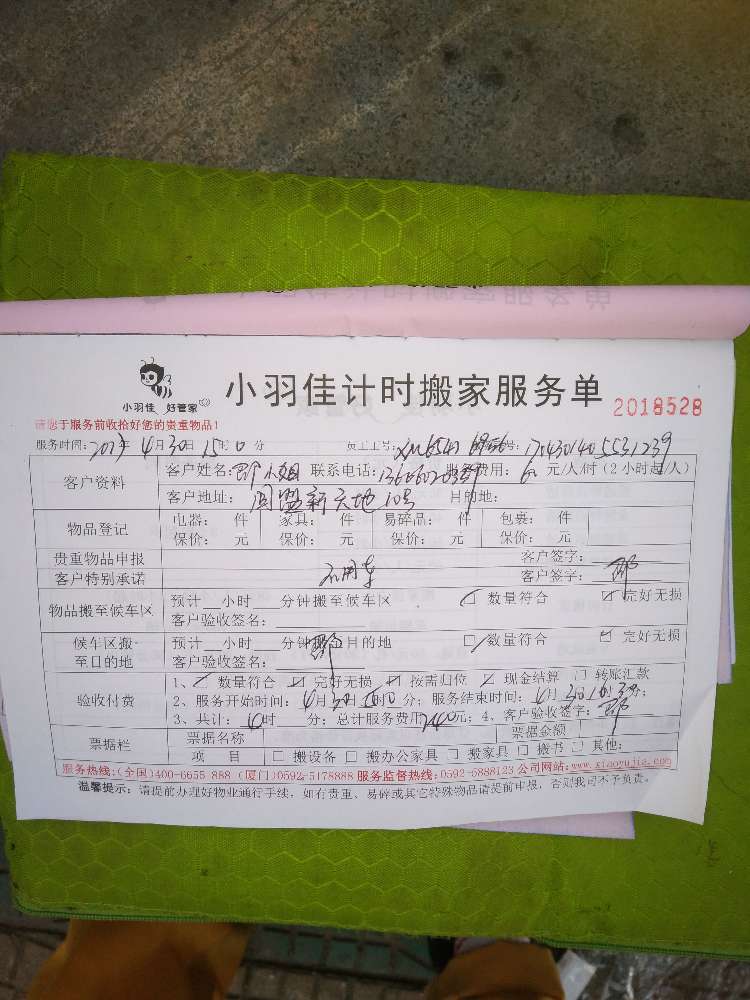 小羽佳 好管家
小羽佳计时搬家服务单 2018528
请您于服务前收拾好您的贵重物品!
服务时间: 2017年 4月30日 15时0分 员工工号: 号: 1704301405531239
客户资料 客户姓名: 小姐 联系电话: 服务费用: 60元/人/时 (2小时起/人)
客户地址: 国盟新天地10号 目的地:
物品登记 电器: 件 家具: 件 易碎品: 件 包裹: 件
保价: 元 保价: 元 保价: 元 保价: 元
贵重物品申报 客户签字:
客户特别承诺 不用车 客户签字:
物品搬至候车区 预计__小时 分钟搬至候车区 □ 数量符合 □ 完好无损
客户验收签名:
候车区搬至目的地 预计__小时 分钟 目的地 □ 数量符合 □ 完好无损
客户验收签名:
验收付费 1、□ 数量符合 □ 完好无损 □ 按需归位 □ 现金结算 □ 转账汇款
2、服务开始时间: 4月30日 时 分; 服务结束时间: 4月30日 时 分;
3、共计: 时 分; 总计服务费用 元; 4、客户验收签字:
票据栏 票据名称 票据金额
项 目 □ 搬设备 □ 搬办公家具 □ 搬家具 □ 搬书 □ 其他:
服务热线: (全国)400-6655 888 (厦门)0592-5178888 服务监督热线: 0592-5888123 公司网站: www.xiaoyujia.com
温馨提示: 请提前办理好物业通行手续, 如有贵重、易碎或其它特殊物品请提前申报, 否则我司不予负责。